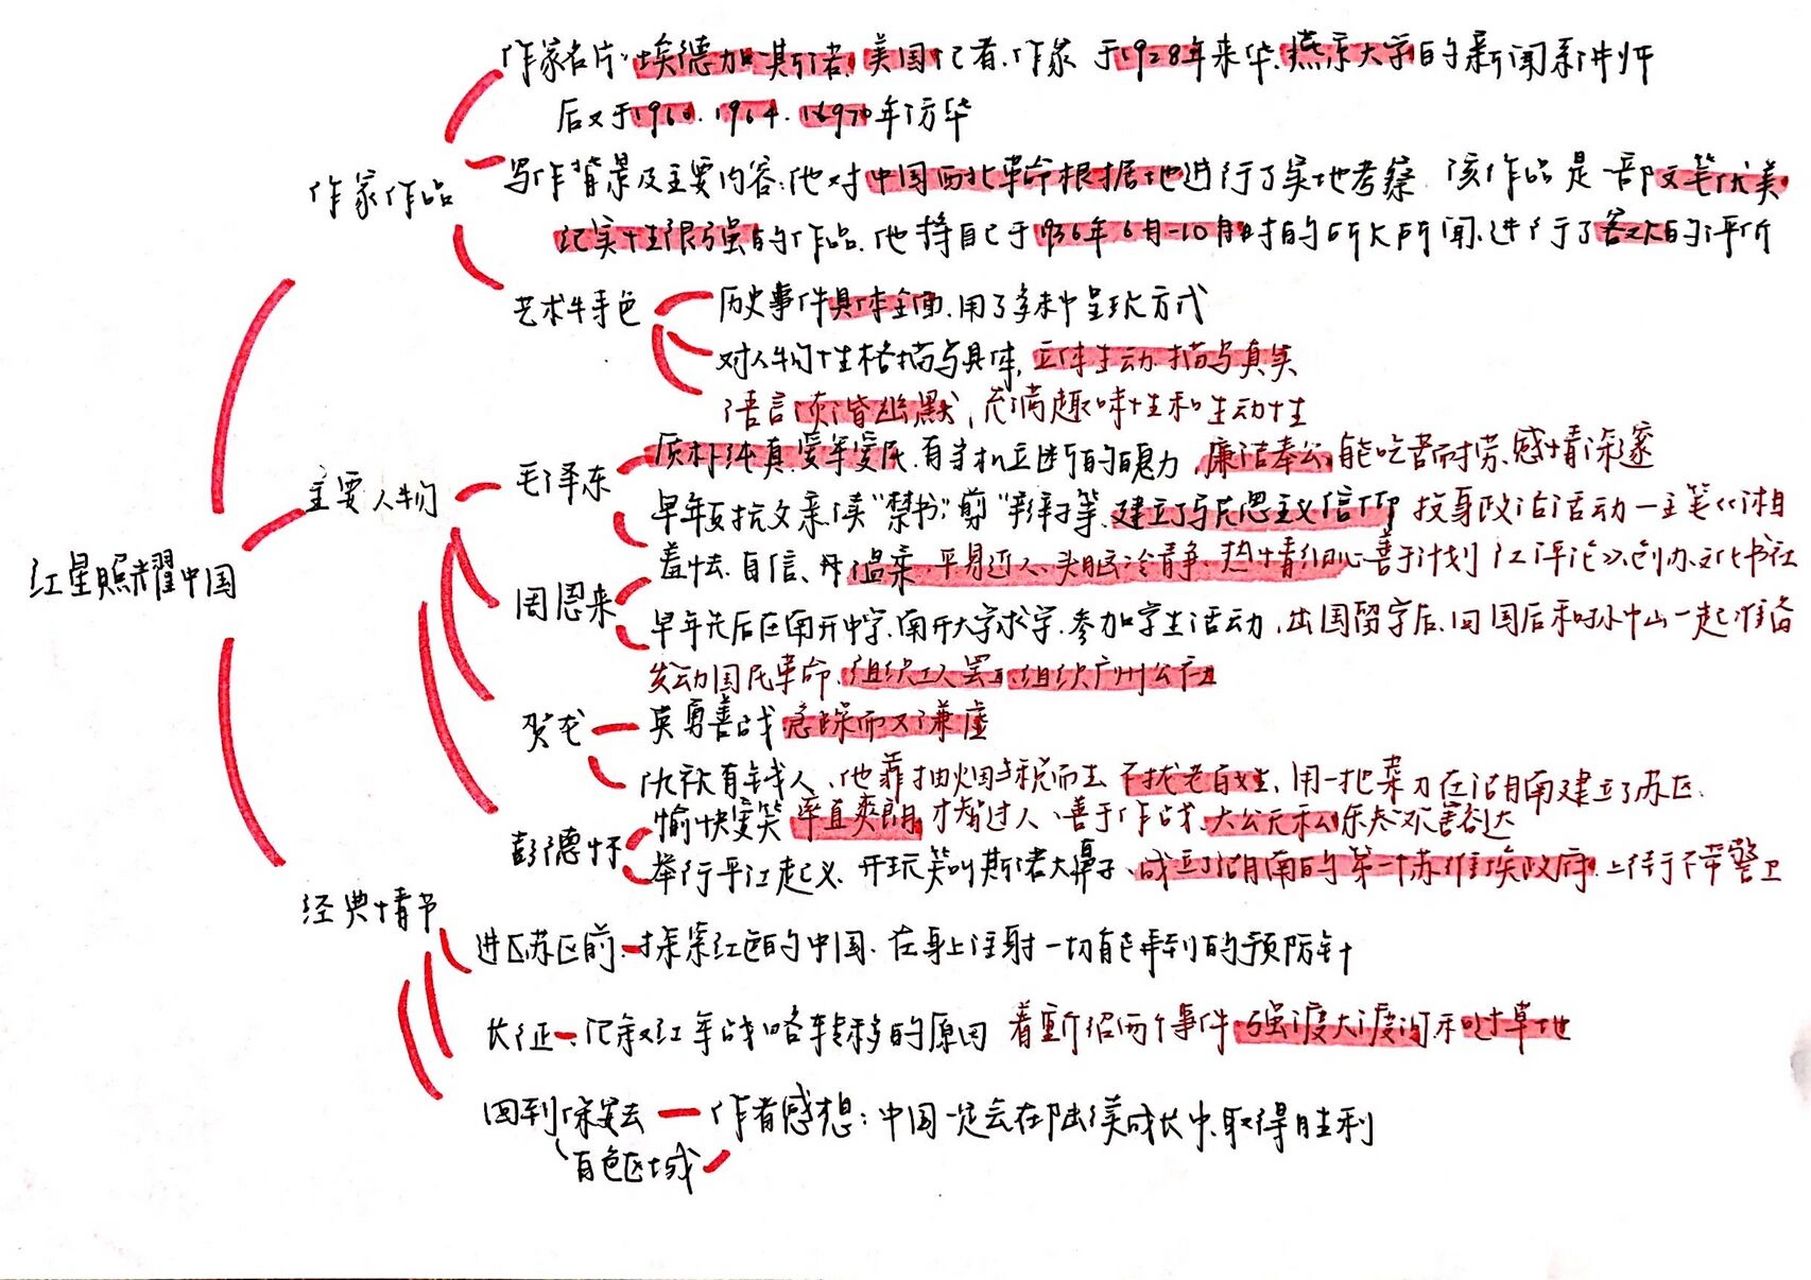 作家名片:埃德加·斯诺,美国记者,作家 于1928年来华.燕京大学的新闻系讲师
后又于1960.1964.1970年访华
作家作品
写作背景及主要内容:他对中国西北革命根据地进行了实地考察 该作品是一部文笔优美
纪实性很强的作品.他将自己于1936年6月-10月时的所大所闻.进行了客观的评价
艺术特色
历史事件具体全面.用了多种呈现方式
对人物性格描写具体,立体生动.描写真实
语言诙谐幽默,充满趣味性和生动性
主要人物
毛泽东
质朴纯真.爱军爱民.有当机立断的魄力,廉洁奉公,能吃苦耐劳.感情深邃
早年反抗父亲读“禁书”,剪“辫子等.建立了马克思主义信仰 投身政治活动—主笔《湘
江评论》,创办文化书社
周恩来
羞怯.自信、温柔.平易近人.头脑冷静.热情细心善于计划
早年先后在南开中学.南开大学求学.参加学生活动,出国留学后.回国后和孙中山一起准备
发动国民革命.组织工人罢工.组织广州公社
贺龙
英勇善战 急躁而又谦虚
仇视有钱人、他靠抽烟税而去 不扰老百姓,用一把菜刀在湖南建立了苏区.
彭德怀
愉快爱笑 率直爽朗 才智过人、善于作战.大公无私 乐参 豁达
举行平江起义.开玩笑叫斯诺大鼻子、成立了湖南的第一个苏维埃政府.上街不带警卫
红星照耀中国
经典情节
进区苏区前 - 探索红色的中国.在身上注射一切能弄到的预防针
长征 - 记叙红军战略转移的原因 着重介绍两个事件.强渡大渡河和过草地
回到保安去 — 作者感想:中国一定会在陆续成长中.取得胜利
百色区域